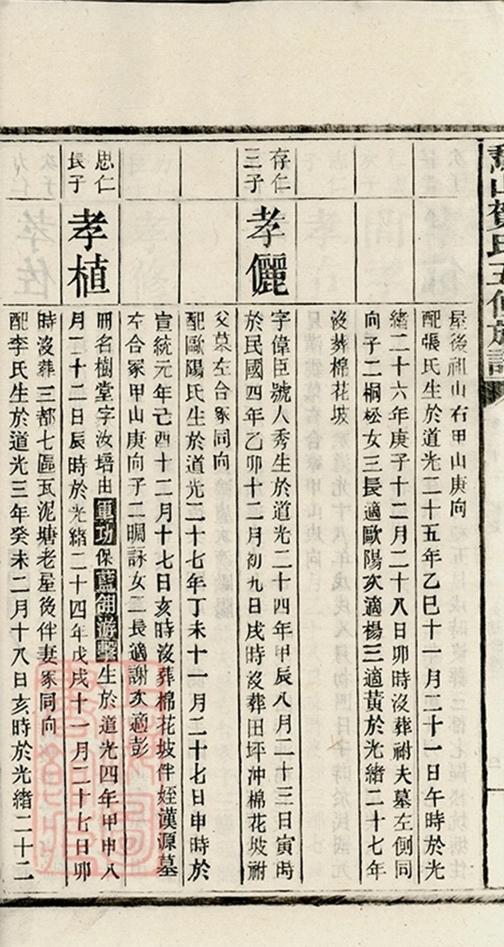 喬山賀氏五修族譜
屋後祖山右甲山庚向
配張氏生於道光二十五年乙巳十一月二十一日午時於光
緒二十六年庚子十二月二十八日卯時沒葬祔夫墓左側同
向子二桐松女三長適歐陽次適楊三適黃於光緒二十七年
沒葬棉花坡
存仁三子
孝儷
字偉臣號人秀生於道光二十四年甲辰八月二十三日寅時
於民國四年乙卯十二月初九日戌時沒葬田坪沖棉花坡祔
父墓左合冢同向
配歐陽氏生於道光二十七年丁未十一月二十七日申時於
宣統元年己酉十二月十七日亥時沒葬棉花坡伴姪漢源墓
左合冢甲山庚向子二賜詠女二長適謝次適彭
思仁長子
孝植
冊名樹堂字汝培由軍功保藍翎游擊生於道光四年甲申八
月二十二日辰時於光緒二十四年戊戌十一月二十七日卯
時沒葬三都七區瓦泥塘老屋後伴妻冢同向
配李氏生於道光三年癸未二月十八日亥時於光緒二十二